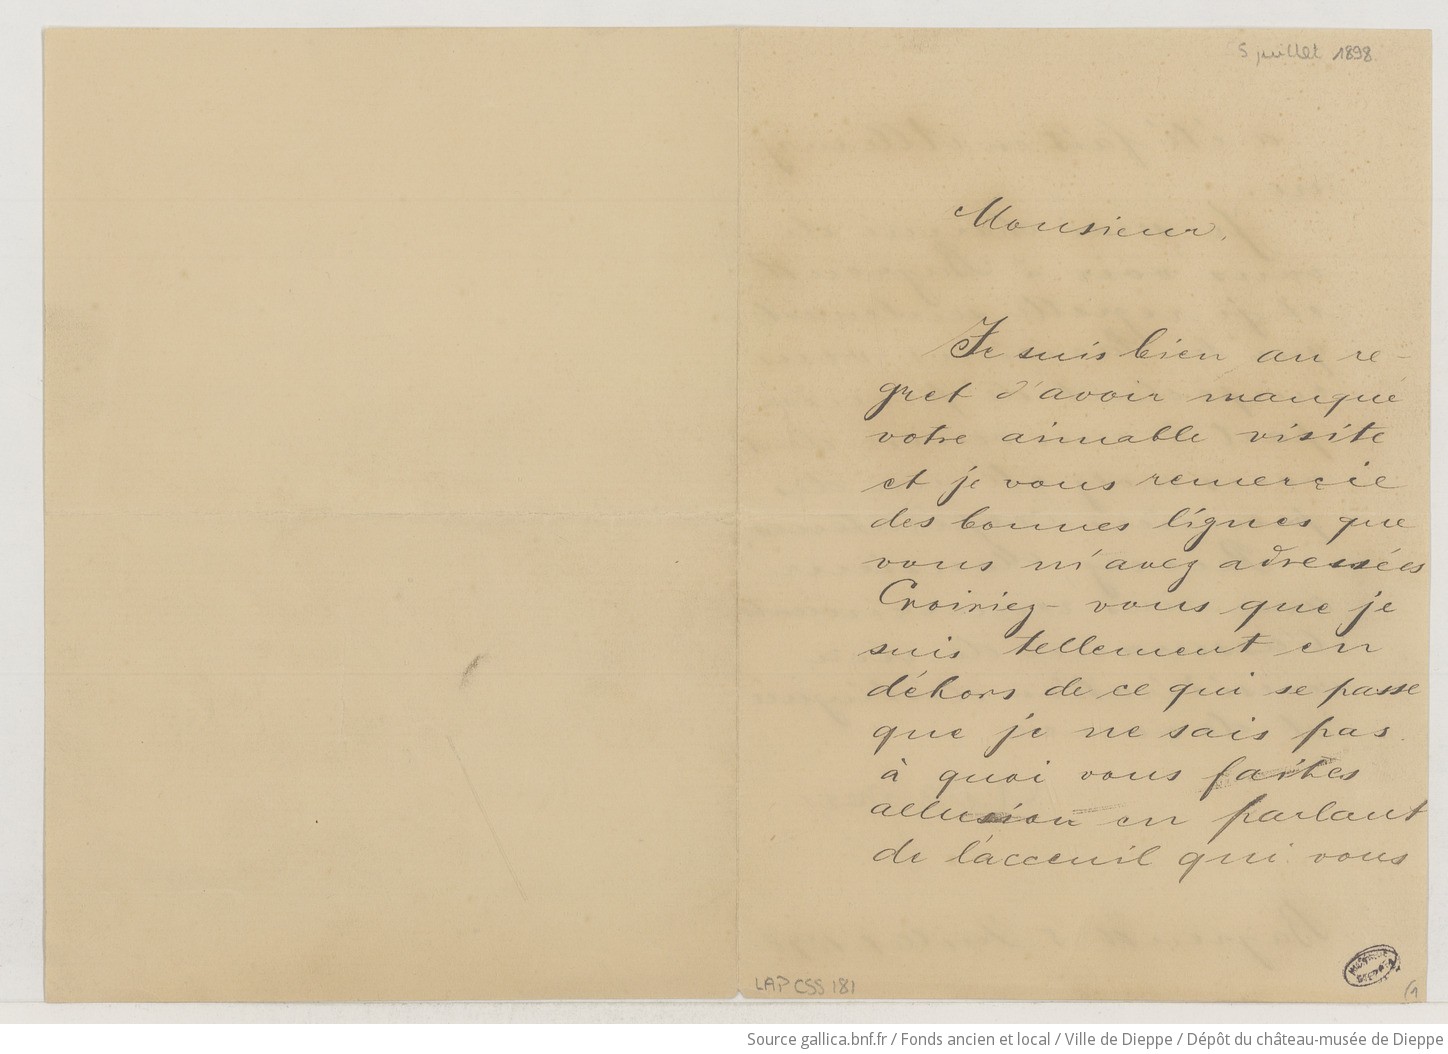 5 juillet 1898
Monsieur,
Je suis bien au re-
gret d'avoir manqué
votre aimable visite
et je vous remercie
des bonnes lignes que
vous m'avez adressées
Croiriez-vous que je
suis tellement en
déhors de ce qui se passe
que je ne sais pas
à quoi vous faites
allusion en parlant
de l'acceuil qui vous
LAP CSS 181
(1
Source gallica.bnf.fr / Fonds ancien et local / Ville de Dieppe / Dépôt du château-musée de Dieppe